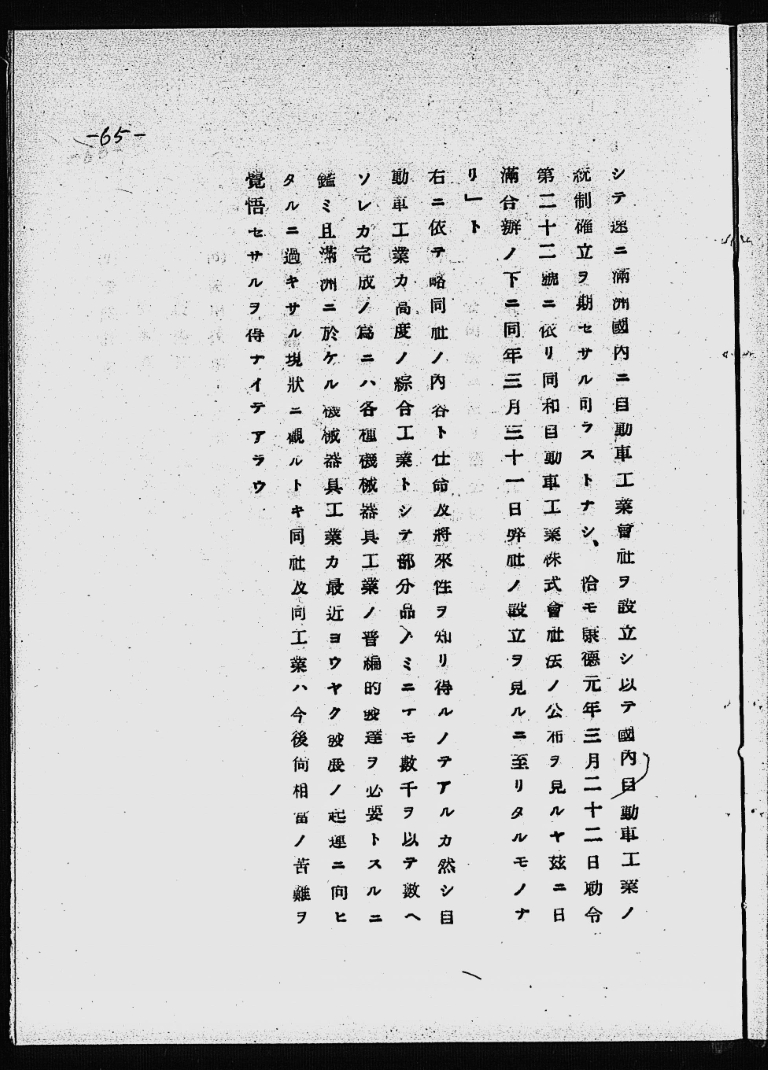 -65-
シテ速ニ滿洲國内ニ自動車工業會社ヲ設立シ以テ國内自動車工業ノ
統制確立ヲ期セサル可ラストナシ、恰モ康德元年三月二十二日勅令
第二十二號ニ依リ同和自動車工業株式會社法ノ公布ヲ見ルヤ玆ニ日
滿合辦ノ下ニ同年三月三十一日弊社ノ設立ヲ見ルニ至リタルモノナ
リ」ト
右ニ依テ略同社ノ内容ト仕命及將來性ヲ知リ得ルノテアルカ然シ自
動車工業カ高度ノ綜合工業トシテ部分品ノミニテモ數千ヲ以テ數ヘ
ソレカ完成ノ爲ニハ各種機械器具工業ノ普遍的發達ヲ必要トスルニ
鑑ミ且滿洲ニ於ケル機械器具工業カ最近ヨウヤク發展ノ起運ニ向ヒ
タルニ過キサル現狀ニ觀ルトキ同社及同工業ハ今後尚相當ノ苦難ヲ
覺悟セサルヲ得ナイテアラウ